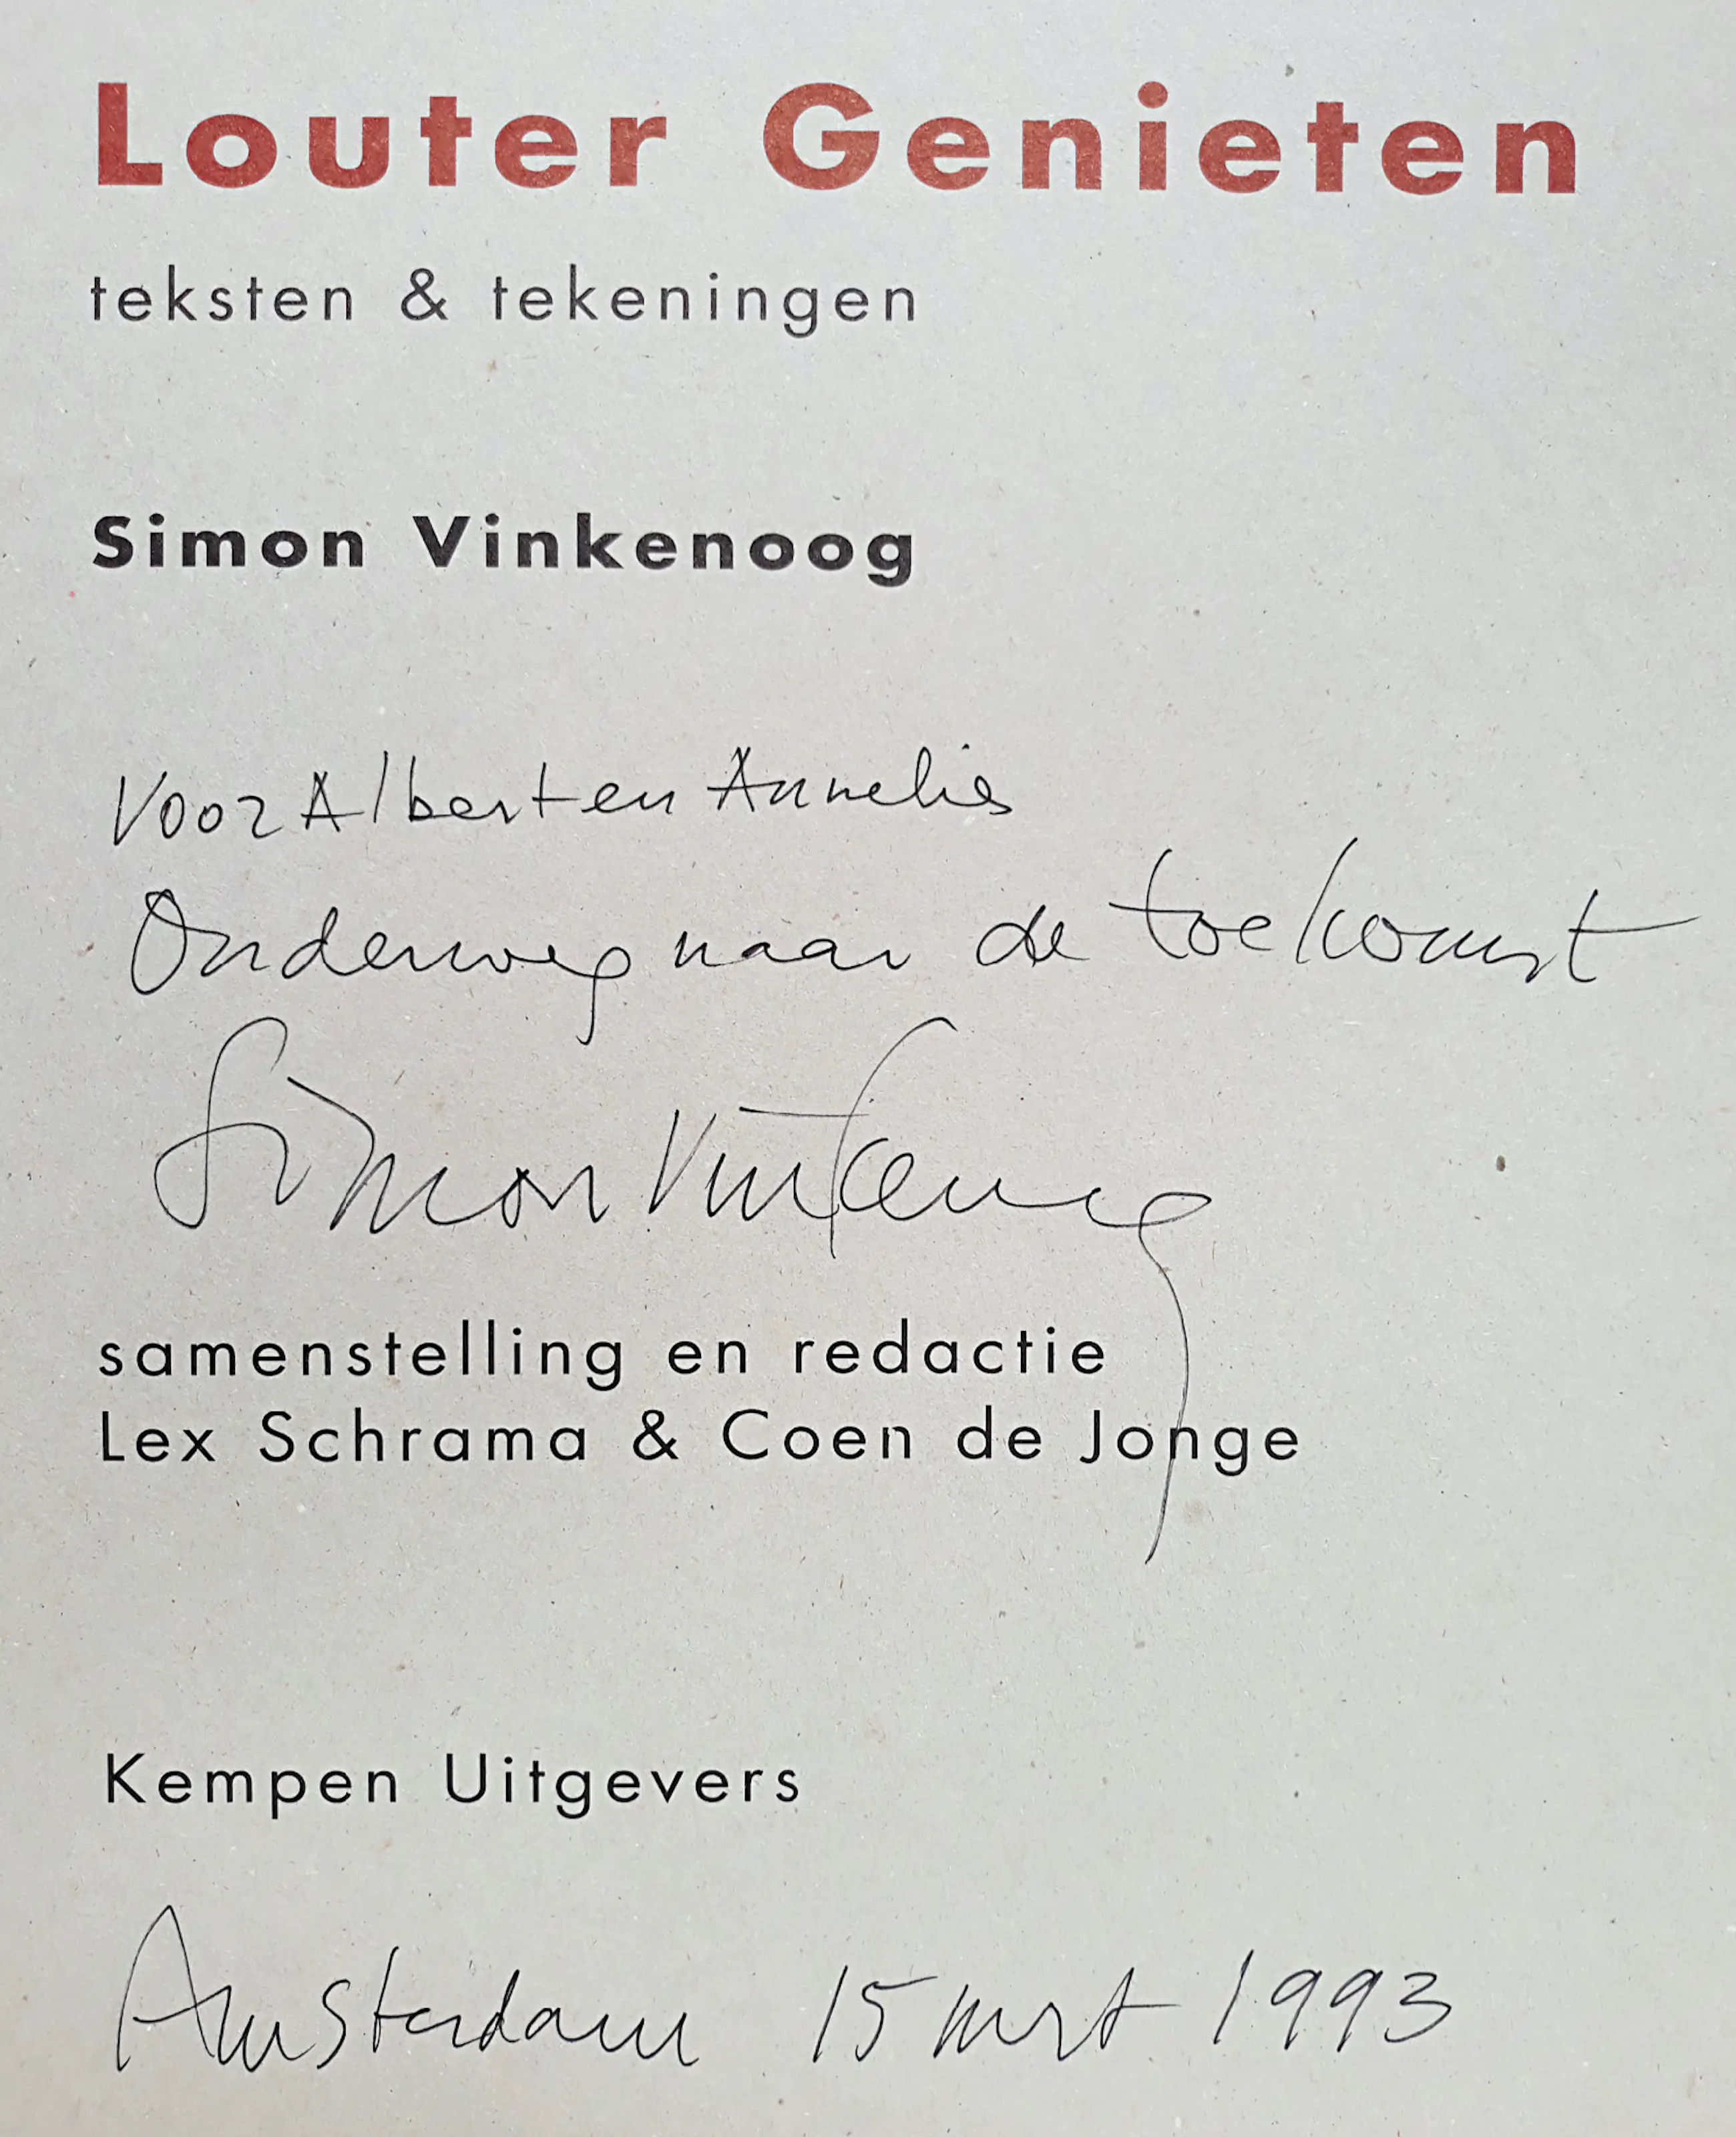 Louter Genieten
teksten & tekeningen
Simon Vinkenoog
Voor Albert en Annelies
Onderweg naar de toekomst
Simon Vinkenoog
samenstelling en redactie
Lex Schrama & Coen de Jonge
Kempen Uitgevers
Amsterdam 15 mrt 1993